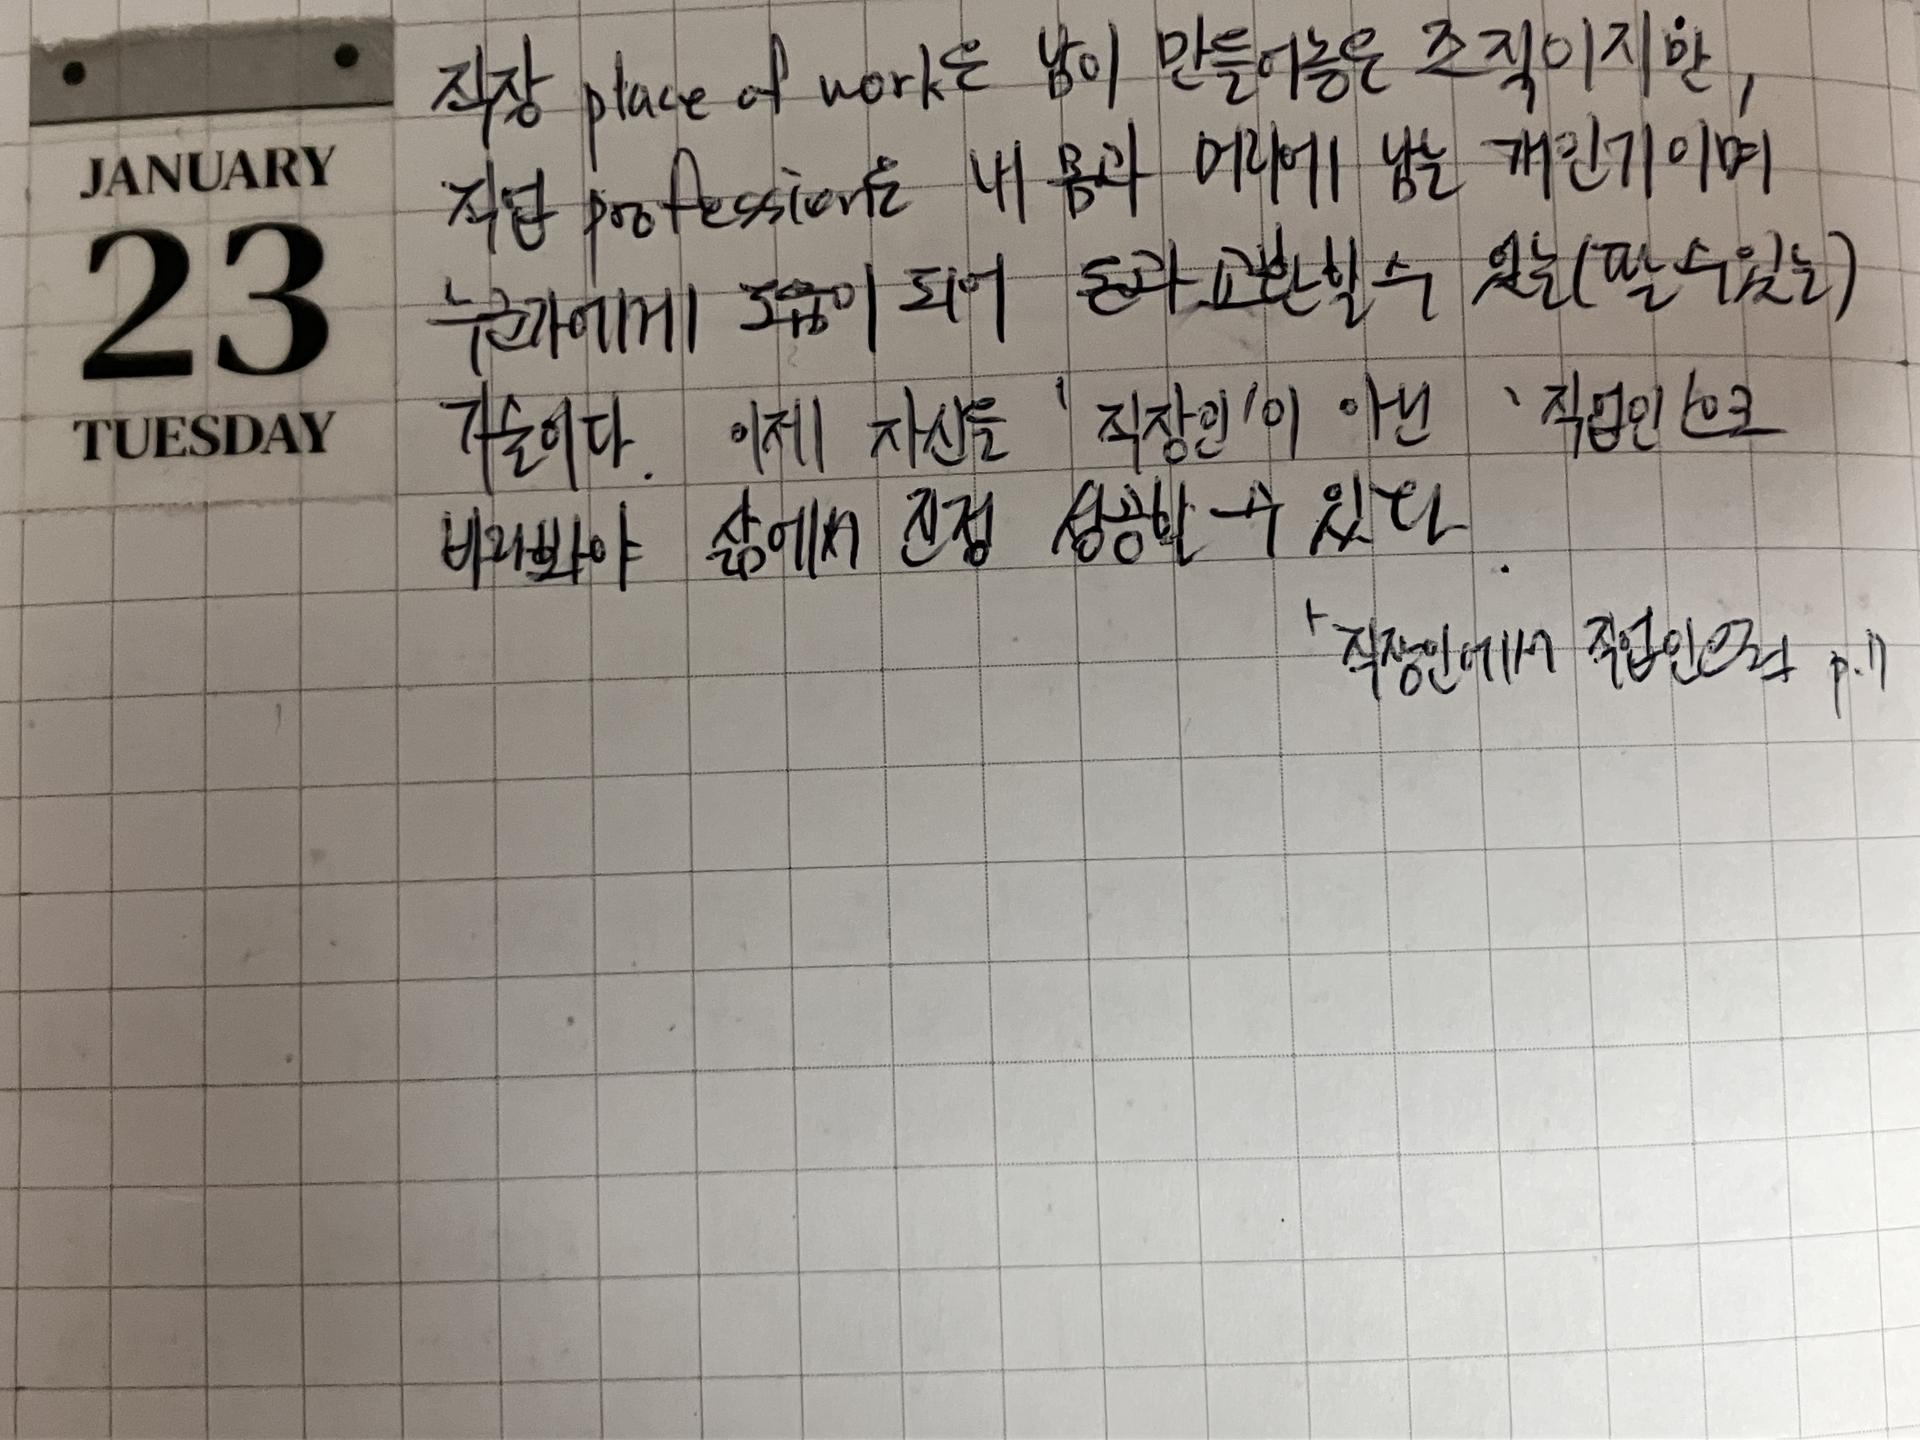 JANUARY
23
TUESDAY
직장 place of work은 남이 만들어놓은 조직이지만,
직업 profession은 내 몸과 머리에 남는 개인기이며
누군가에게 도움이 되어 돈과 교환할 수 있는(팔 수 있는)
기술이다. 이제 자신을 '직장인'이 아닌 '직업인'으로
바라봐야 삶에서 진정 성공할 수 있다.
「직장인에서 직업인으로」 p.17